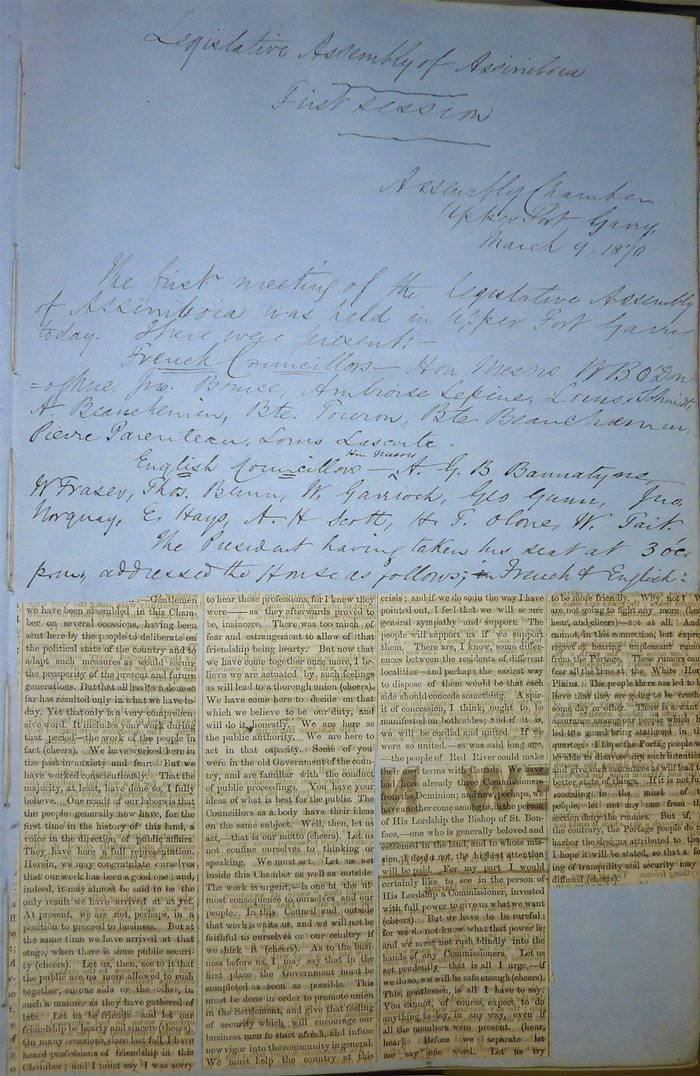 Legislative Assembly of Assiniboia
First session
Assembly Chamber
Upper Fort Garry
March 9, 1870
The first meeting of the Legislative Assembly
of Assiniboia was held in Upper Fort Garry
today. There were present:-
French Councillors- Hon Messrs W B O'Don-
=oghue, Jno. Bruce, Ambroise Lepine, Louis Schmidt
A. Beauchemin, Bte. Touron, Bte. Beauchemin,
Pierre Parenteau, Louis Lascerte.
Hon Messrs
English Councillors- A. G. B Bannatyne,
W Fraser, Thos. Bunn, W. Garrioch, Geo Gunn, Jno.
Norquay, E. Hays, A. H Scott, H. F. Olone, W. Tait.
The President having taken his seat at 3 oc
p.m., addressed the House as follows; in French & English:
Gentlemen
we have been assembled in this Cham-
ber on several occasions, having been
sent here by the people to deliberate on
the political state of the country and to
adapt such measures as would secure
the prosperity of the present and future
generations. But that all has been done so
far has resulted only in what we have to-
day. Yet that only is a very comprehen-
sive word. It includes your work during
that period—the work of the people in
fact (cheers). We have worked here in
the past in anxiety and fear. But we
have worked conscientiously. That the
majority, at least, have done so, I fully
believe. One result of our labors is that
the people generally now have, for the
first time in the history of this land, a
voice in the direction of public affairs.
They have here a full representation.
Herein, we may congratulate ourselves
that our work has been a good one; and,
indeed, it may almost be said to be the
only result we have arrived at as yet.
At present, we are not, perhaps, in a
position to proceed to business. But at
the same time we have arrived at that
stage, when there is some public securi-
ty (cheers). Let us, then, see to it that
the public are no more allowed to rush
together, on one side or the other, in
such a manner as they have gathered of
late. Let us be friends—and let our
friendship be hearty and sincere (cheers).
On many occasions, since last fall, I have
heard professions of friendship in this
Chamber; and I must say I was sorry
to hear those professions, for I knew they
were——as they afterwards proved to
be, insincere. There was too much of
fear and estrangement to allow of that
friendship being hearty. But now that
we have come together once more, I be-
lieve we are actuated by such feelings
as will lead to a thorough union (cheers).
We have come here to decide on that
which we believe to be our duty, and
will do it honestly. We are here as
the public authority. We are here to
act in that capacity. Some of you
were in the old Government of the coun-
try, and are familiar with the conduct
of public proceedings. You have your
ideas of what is best for the public. The
Councillors as a body have their ideas
on the same subject. Well, then, let us
act,—that is our motto (cheers). Let us
not confine ourselves to thinking or
speaking. We must act. Let us act
inside this Chamber as well as outside
The work is urgent,—is one of the ut-
most consequence to ourselves and our
people. In this Council and outside
that work awaits us, and we will not be
faithful to ourselves or our country if
we shirk it (cheers). As to the busi-
ness before us, I may say that in the
first place, the Government must be
completed as soon as possible. This
must be done in order to promote union
in the Settlement, and give that feeling
of security which will encourage our
business men to start afresh, and infuse
new vigor into the community in general
We must help the country at this
crisis; and if we do so in the way I have
pointed out, I feel that we will secure
general sympathy and support. The
people will support us if we support
them. There are, I know, some differ-
ences between the residents of different
localities—and perhaps the easiest way
to dispose of them would be that each
side should concede something. A spir-
it of concession, I think, ought to be
manifested on both sides; and if it is,
we will be cordial and united. If we
were so united—as was said long ago,
—the people of Red River could make
their own terms with Canada. We have
had here already three Commissioners
from the Dominion; and now, perhaps, we
have another come amongst us, in the person
of His Lordship the Bishop of St. Bon-
iface,—one who is generally beloved and
esteemed in the land, and to whose mis-
sion, I doubt not, the highest attention
will be paid. For my part I would
certainly like to see in the person of
His Lordship a Commissioner, invested
with full power to give us what we want
(cheers). But we have to be careful;
for we do not know what that power is;
and we must not rush blindly into the
hands of any Commissioners. Let us
act prudently—that is all I urge,—if
we do so, we will be safe enough (cheers).
This, gentlemen, is all I have to say.
You cannot, of course, expect to do
anything to-day, in any way, even if
all the members were present. (hear,
hear). Before we separate let
me say one word. Let us try
to be more friendly. Why not? W
are not going to fight any more (
hear, and cheers)—not at all. And
cannot, in this connection, but expre
regret at hearing unpleasant rumo
from the Portage. These rumors cau
fear all the time at the White Hor
Plains. The people there are led to
lieve that they are going to be crush
some day or other. There is a want
assurance among our people which
led to a guard being stationed in
quarter. I hope the Portage people w
be able to disavow any such intention
and give such assurances as will lea
better state of things. If it is not
according to the mind of
people, let not any one from
section deny the rumors. But if,
the contrary, the Portage people do
harbor the designs attributed to the
I hope it will be stated, so that a fe
ing of tranquility and security may
diffused (cheers).